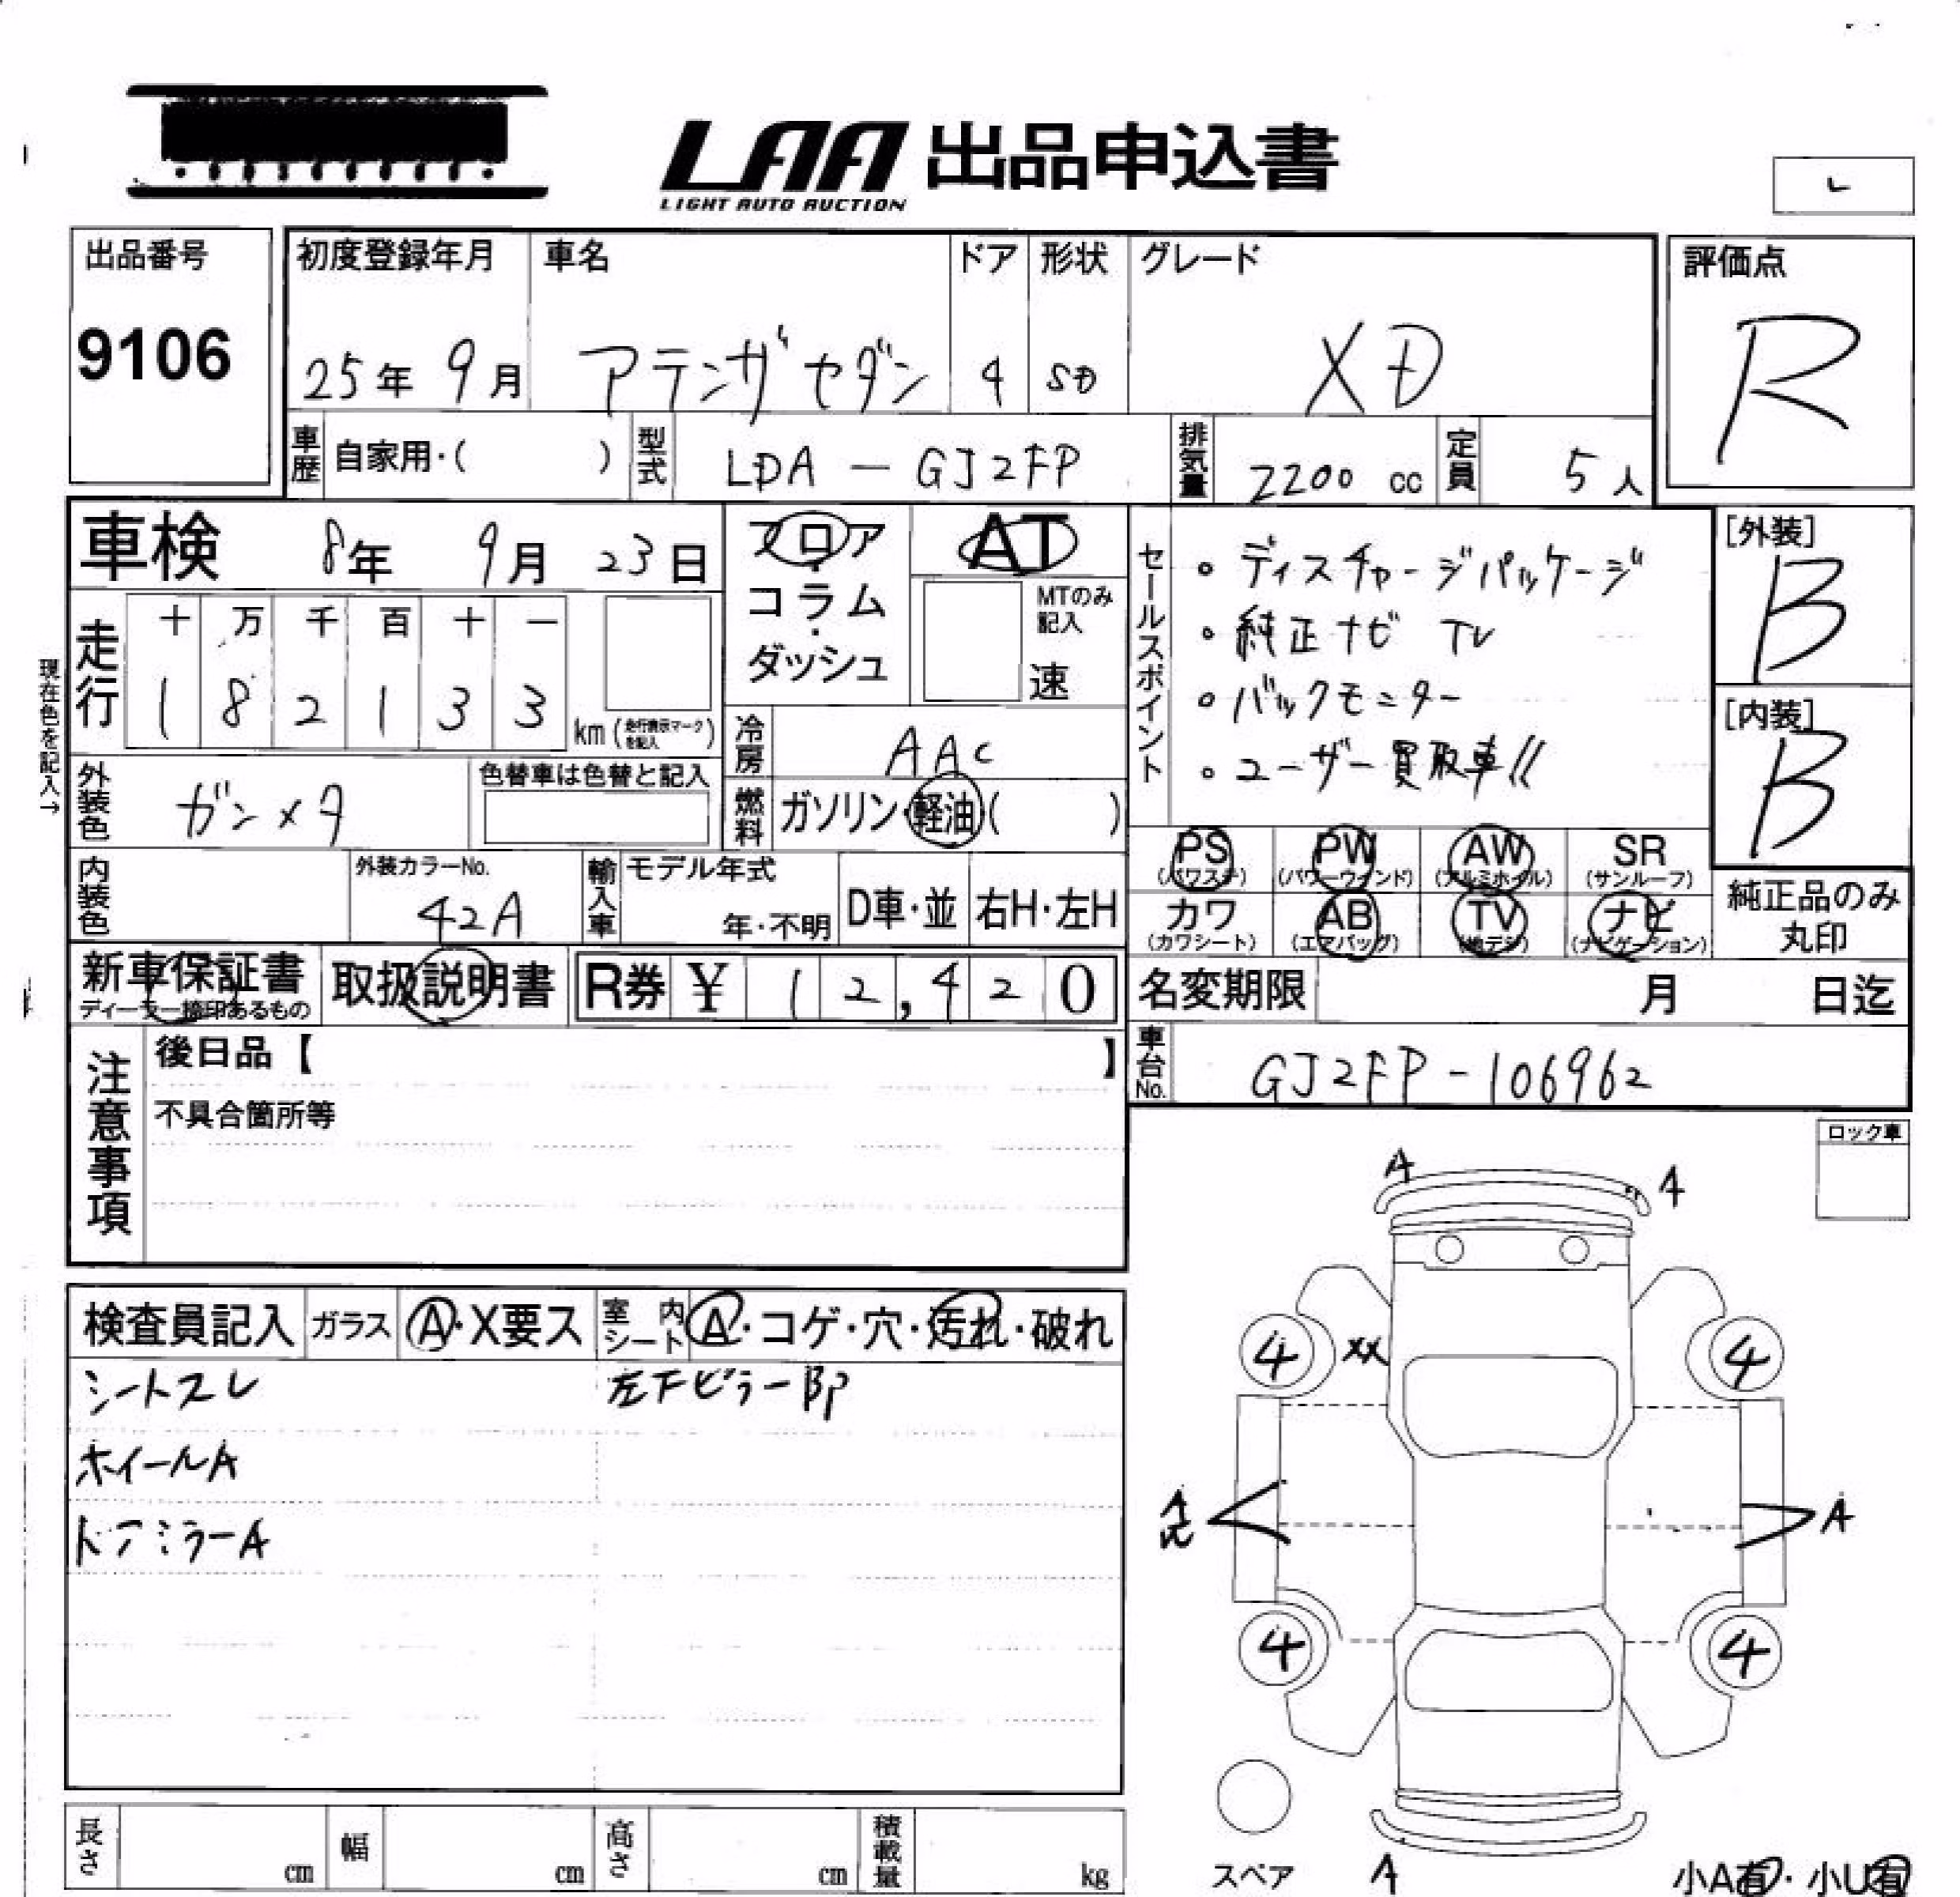 LAA 出品申込書
LIGHT AUTO AUCTION
出品番号
9106
初度登録年月
25年 9月
車名
アテンザセダン
ドア
4
形状
SD
グレード
XD
評価点
R
車歴 自家用・( )
型式 LDA - GJ2FP
排気量 2200 cc
定員 5人
車検 8年 9月 23日
フロア・コラム・ダッシュ
AT
MTのみ記入
速
セールスポイント
・ディスチャージパッケージ
・純正ナビ TV
・バックモニター
・ユーザー買取車!!
[外装]
B
[内装]
B
現在色を記入→
走行
十 万 千 百 十 一
1 8 2 1 3 3 km (走行表示マークを記入)
冷房 AAC
燃料 ガソリン・軽油( )
外装色 ガンメタ
色替車は色替と記入
内装色
外装カラーNo.
42A
輸入車
モデル年式
年・不明
D車・並
右H・左H
PS (パワステ)
PW (パワーウインド)
AW (アルミホイル)
SR (サンルーフ)
カワ (カワシート)
AB (エアバッグ)
TV (地デジ)
ナビ (ナビゲーション)
純正品のみ丸印
新車保証書
ディーラー捺印あるもの
取扱説明書
R券 ¥ 12,420
名変期限 月 日迄
車台No. GJ2FP-106962
注意事項
後日品【 】
不具合箇所等
ロック車
検査員記入
ガラス A・X要ス
室内シート A・コゲ・穴・汚れ・破れ
シートスレ
左下ピラーBP
ホイールA
ドアミラーA
A A
4 XX 4
A A
4 4
スペア
A
小A有・小U有
長さ cm
幅 cm
高さ cm
積載量 kg